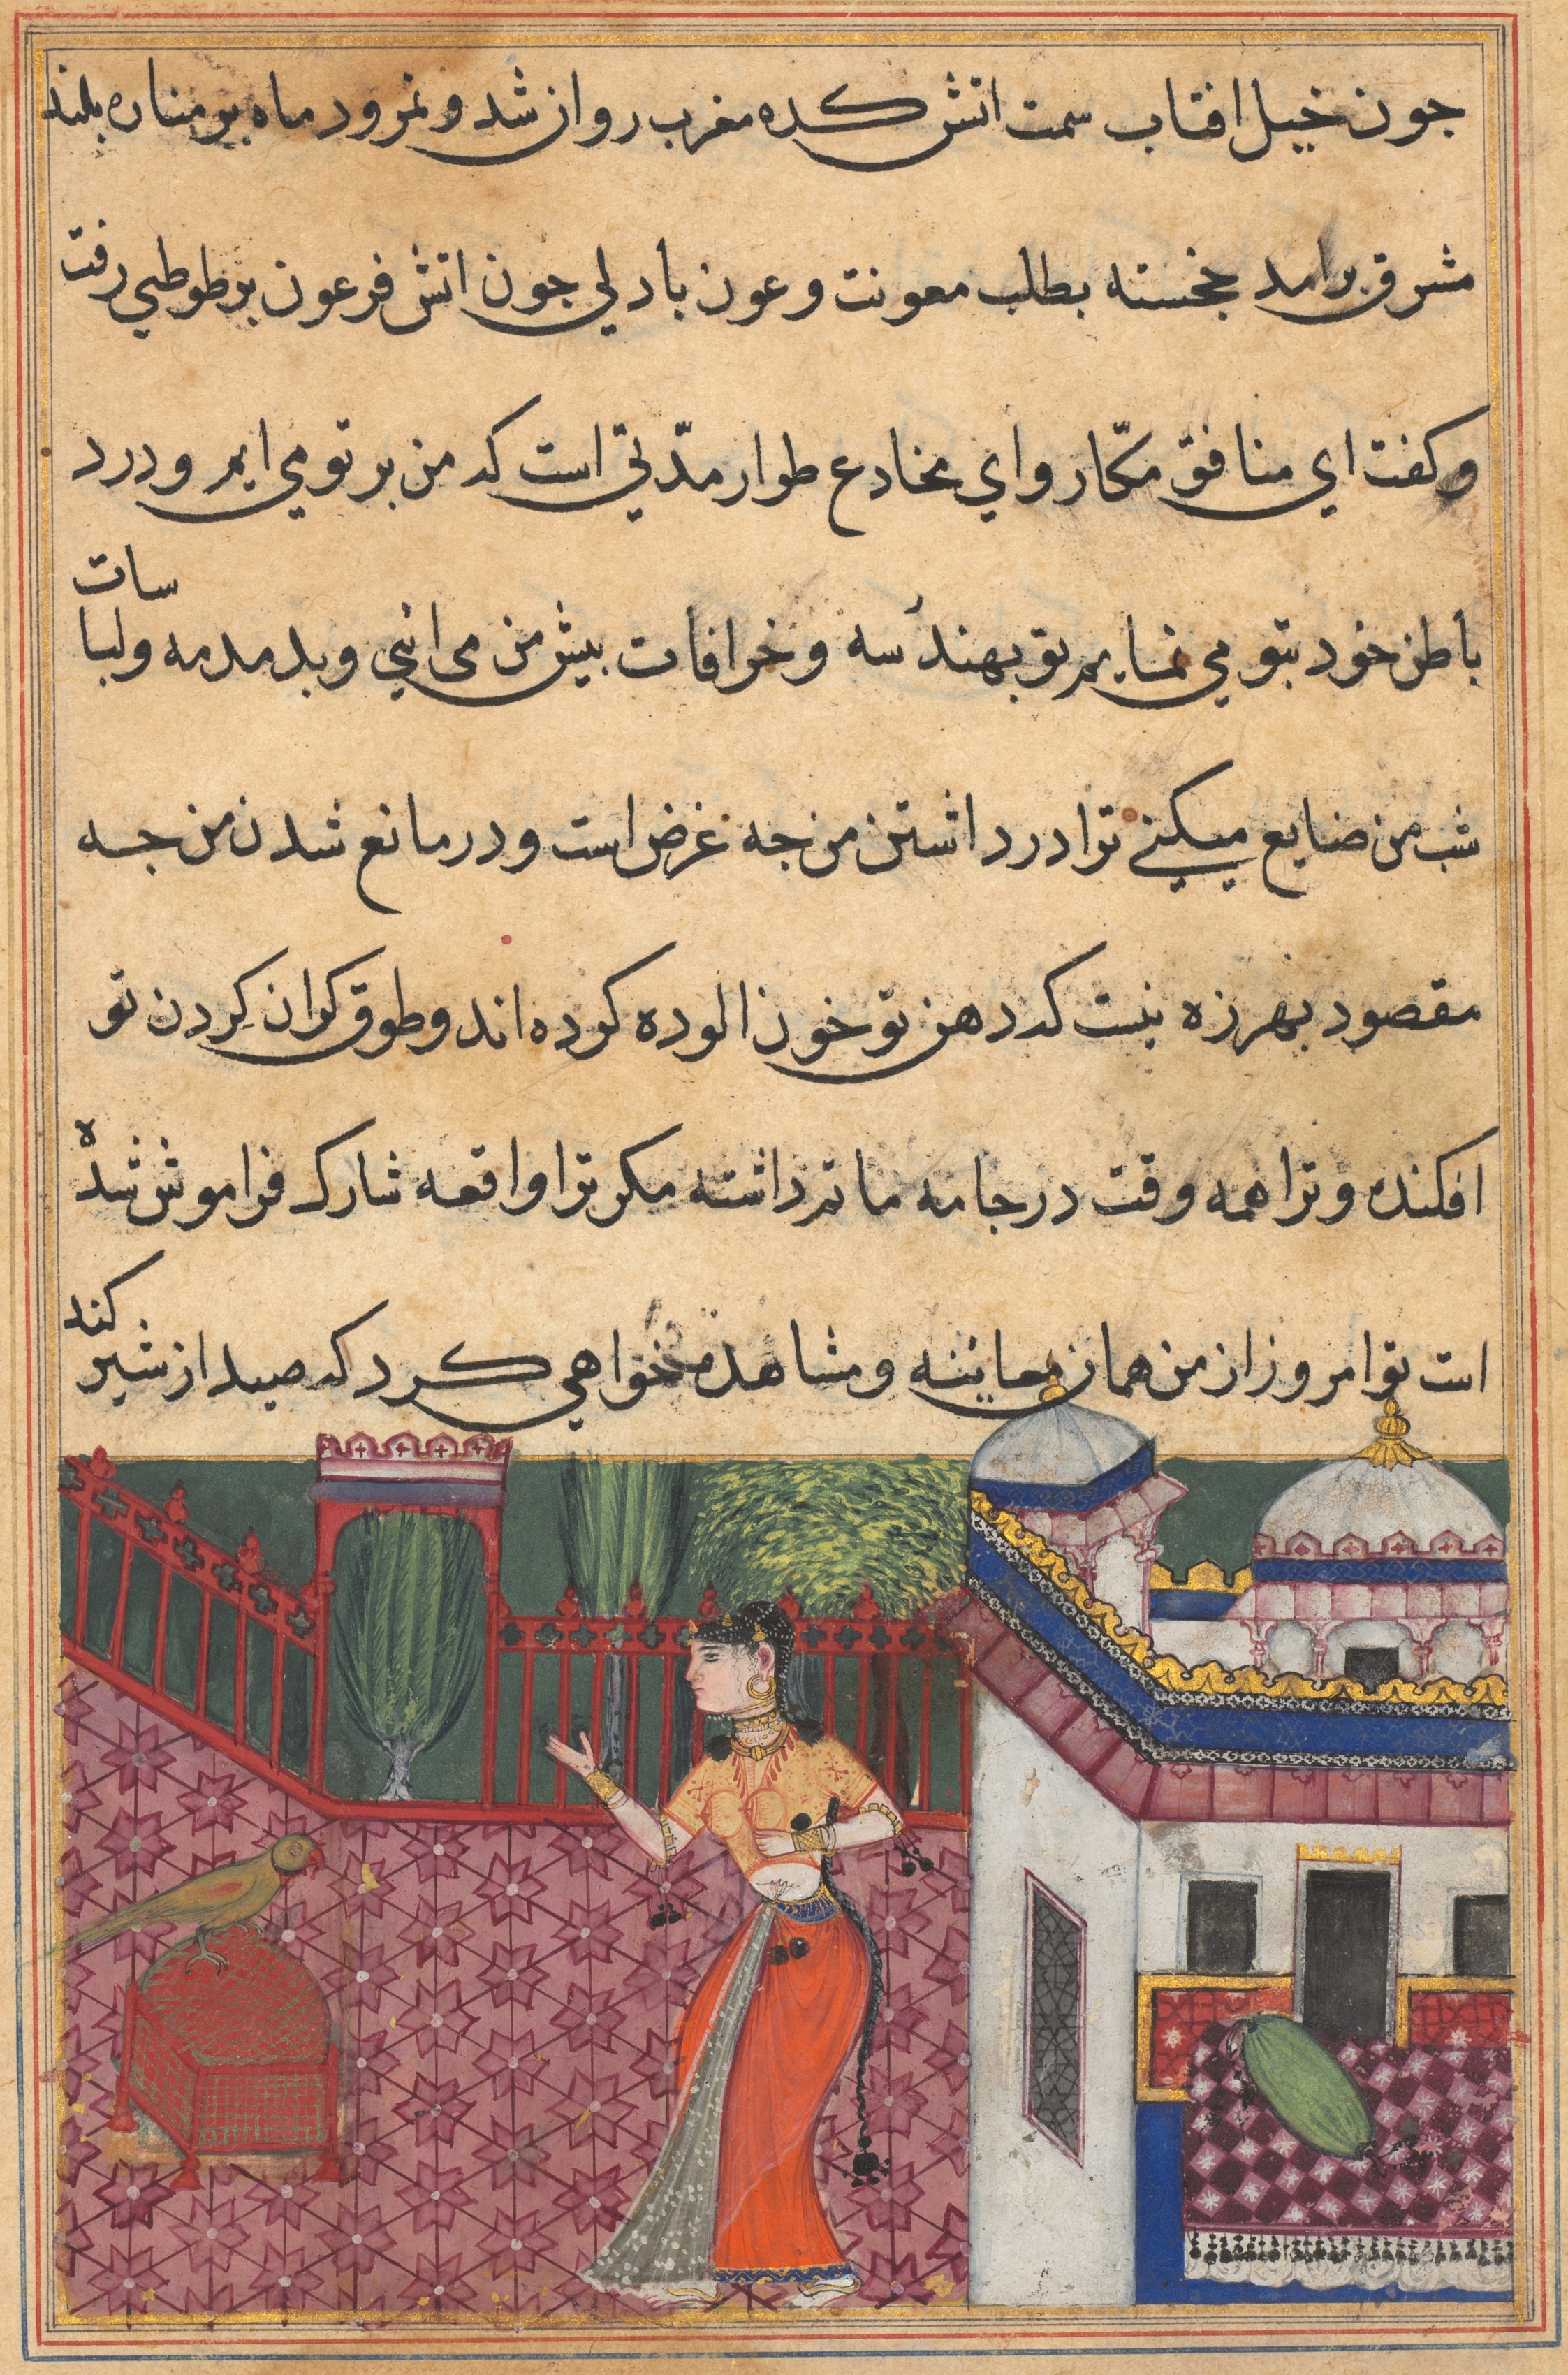 جون خیل افتاب سمت اتش کده مغرب روان شد و نمرود ماه بر مناره بلند
مشرق برامد خجسته بطلب معونت و عون بادلي جون اتش فرعون بر طوطي رفت
و کفت اي منافق مکّار و اي مخادع طوار مدّتي است که من بر تو مي ایم و درد
باطن خود بتو مي نمایم تو بهندسه و خرافات بیش من می اني و بدمدمه و لباسات
شب من ضایع میکني ترا در داشتن من جه غرض است و در مانع شدن من جه
مقصود بهرزه نیست که دهن تو خون الوده کرده اند و طوق کران کردن تو
افکنده و ترا همه وقت در جامه ماتم داشته مکر ترا واقعه شارک فراموش شده
است تو امروز از من همان معاینه و مشاهده خواهي کرد که صید از شیر کند